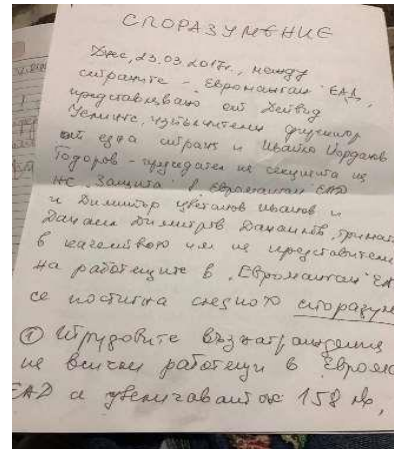 СПОРАЗУМЕНИЕ
Днес, 23.03.2017г., между
страните - "Евроманган" ЕАД,
представлявано от Дейвид
изпълнителен директор
от една страна и Ивайло Йорданов
Тодоров - председател на секцията на
НС "Защита" в "Евроманган" ЕАД
и Димитър Цветанов Иванов и
Данаил Димитров Данаилов, тримата
в качеството им на представители
на работещите в "Евроманган" ЕА
се постигна следното споразум
① Трудовите възнаграждения
на всички работещи в Евром
ЕАД се увеличават с 158 лв,